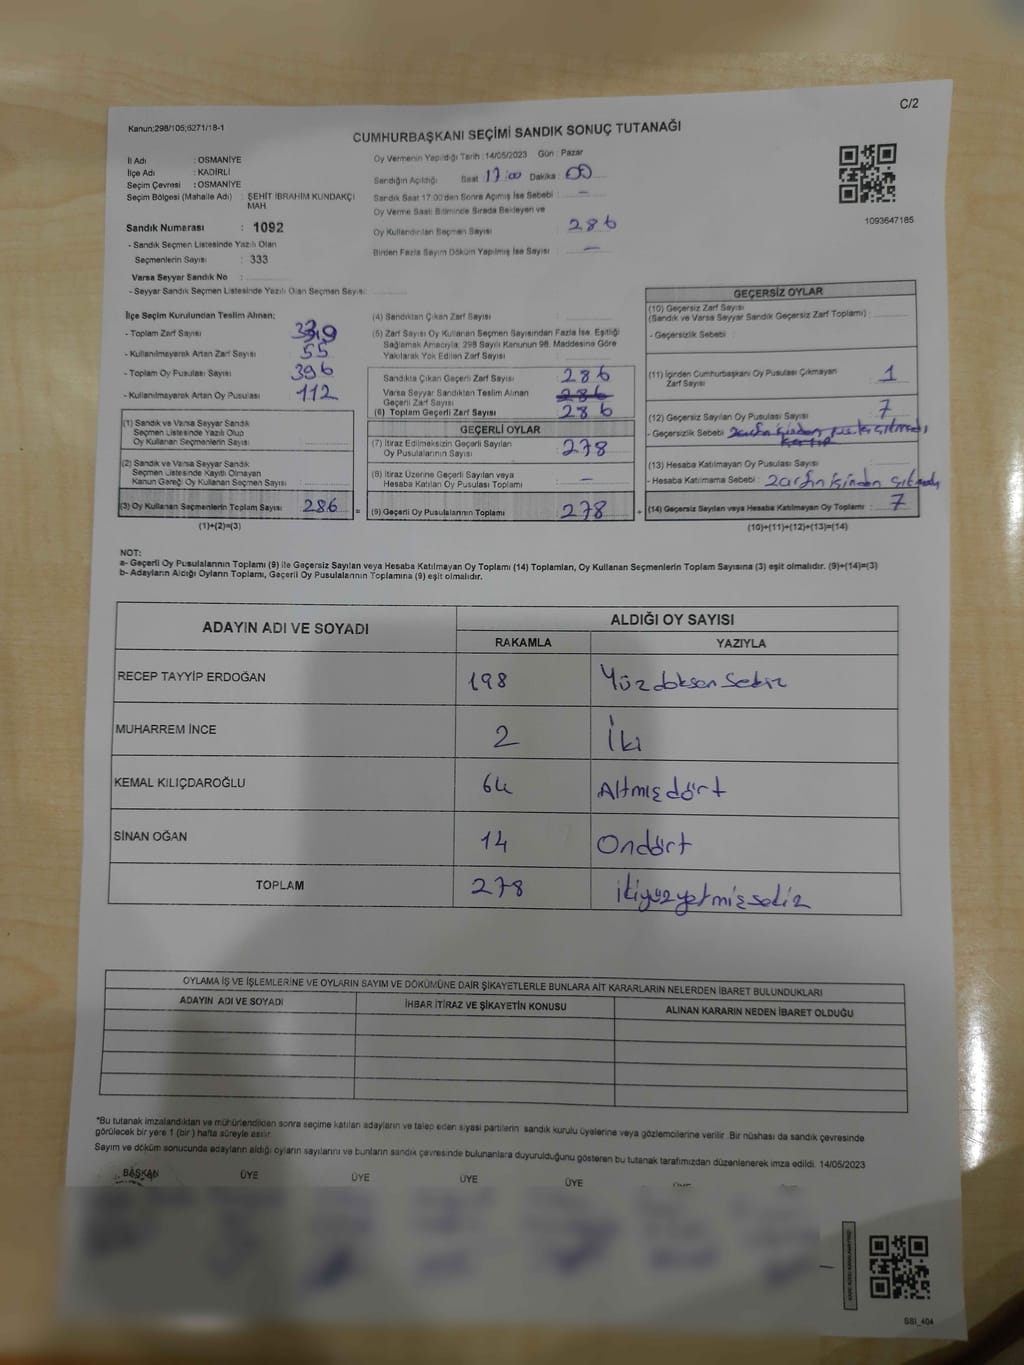 C/2
Kanun;298/105;6271/18-1
CUMHURBAŞKANI SEÇİMİ SANDIK SONUÇ TUTANAĞI
İl Adı : OSMANİYE
İlçe Adı : KADİRLİ
Seçim Çevresi : OSMANİYE
Seçim Bölgesi (Mahalle Adı) : ŞEHİT İBRAHİM KUNDAKÇI MAH.
Sandık Numarası : 1092
- Sandık Seçmen Listesinde Yazılı Olan
Seçmenlerin Sayısı : 333
Varsa Seyyar Sandık No :
- Seyyar Sandık Seçmen Listesinde Yazılı Olan Seçmen Sayısı:
Oy Vermenin Yapıldığı Tarih : 14/05/2023 Gün : Pazar
Sandığın Açıldığı Saat : 17:00 Dakika : 00
Sandık Saat 17.00'den Sonra Açılmış İse Sebebi : -
Oy Verme Saati Bitiminde Sırada Bekleyen ve
Oy Kullandırılan Seçmen Sayısı : 286
Birden Fazla Sayım Döküm Yapılmış İse Sayısı : -
1093647185
İlçe Seçim Kurulundan Teslim Alınan;
- Toplam Zarf Sayısı
- Kullanılmayarak Artan Zarf Sayısı : 55
- Toplam Oy Pusulası Sayısı : 396
- Kullanılmayarak Artan Oy Pusulası : 112
(1) Sandık ve Varsa Seyyar Sandık
Seçmen Listesinde Yazılı Olup
Oy Kullanan Seçmenlerin Sayısı :
(2) Sandık ve Varsa Seyyar Sandık
Seçmen Listesinde Kayıtlı Olmayan
Kanun Gereği Oy Kullanan Seçmen Sayısı :
(3) Oy Kullanan Seçmenlerin Toplam Sayısı : 286 =
(1)+(2)=(3)
(4) Sandıktan Çıkan Zarf Sayısı :
(5) Zarf Sayısı Oy Kullanan Seçmen Sayısından Fazla İse, Eşitliği
Sağlamak Amacıyla; 298 Sayılı Kanunun 98. Maddesine Göre
Yakılarak Yok Edilen Zarf Sayısı :
Sandıkta Çıkan Geçerli Zarf Sayısı : 286
Varsa Seyyar Sandıktan Teslim Alınan
Geçerli Zarf Sayısı : 286
(6) Toplam Geçerli Zarf Sayısı : 286
GEÇERLİ OYLAR
(7) İtiraz Edilmeksizin Geçerli Sayılan
Oy Pusulalarının Sayısı : 278
(8) İtiraz Üzerine Geçerli Sayılan veya
Hesaba Katılan Oy Pusulası Toplamı : -
(9) Geçerli Oy Pusulalarının Toplamı : 278 +
GEÇERSİZ OYLAR
(10) Geçersiz Zarf Sayısı
(Sandık ve Varsa Seyyar Sandık Geçersiz Zarf Toplamı) :
- Geçersizlik Sebebi :
(11) İçinden Cumhurbaşkanı Oy Pusulası Çıkmayan
Zarf Sayısı : 1
(12) Geçersiz Sayılan Oy Pusulası Sayısı : 7
- Geçersizlik Sebebi : zarfın içinden
(13) Hesaba Katılmayan Oy Pusulası Sayısı :
- Hesaba Katılmama Sebebi : zarfın içinden çıkmadı
(14) Geçersiz Sayılan veya Hesaba Katılmayan Oy Toplamı : 7
(10)+(11)+(12)+(13)=(14)
NOT:
a- Geçerli Oy Pusulalarının Toplamı (9) ile Geçersiz Sayılan veya Hesaba Katılmayan Oy Toplamı (14) Toplamları, Oy Kullanan Seçmenlerin Toplam Sayısına (3) eşit olmalıdır. (9)+(14)=(3)
b- Adayların Aldığı Oyların Toplamı, Geçerli Oy Pusulalarının Toplamına (9) eşit olmalıdır.
ADAYIN ADI VE SOYADI ALDIĞI OY SAYISI
RAKAMLA YAZIYLA
RECEP TAYYİP ERDOĞAN 198 Yüz doksan sekiz
MUHARREM İNCE 2 İki
KEMAL KILIÇDAROĞLU 64 Altmış dört
SİNAN OĞAN 14 Ondört
TOPLAM 278 ikiyüzyetmişsekiz
OYLAMA İŞ VE İŞLEMLERİNE VE OYLARIN SAYIM VE DÖKÜMÜNE DAİR ŞİKAYETLERLE BUNLARA AİT KARARLARIN NELERDEN İBARET BULUNDUKLARI
ADAYIN ADI VE SOYADI İHBAR İTİRAZ VE ŞİKAYETİN KONUSU ALINAN KARARIN NEDEN İBARET OLDUĞU
*Bu tutanak imzalandıktan ve mühürlendikten sonra seçime katılan adayların ve talep eden siyasi partilerin sandık kurulu üyelerine veya gözlemcilerine verilir. Bir nüshası da sandık çevresinde
görülecek bir yere 1 (bir) hafta süreyle asılır.
Sayım ve döküm sonucunda adayların aldığı oyların sayılarını ve bunların sandık çevresinde bulunanlara duyurulduğunu gösteren bu tutanak tarafımızdan düzenlenerek imza edildi. 14/05/2023
BAŞKAN ÜYE ÜYE ÜYE ÜYE
SSI_404